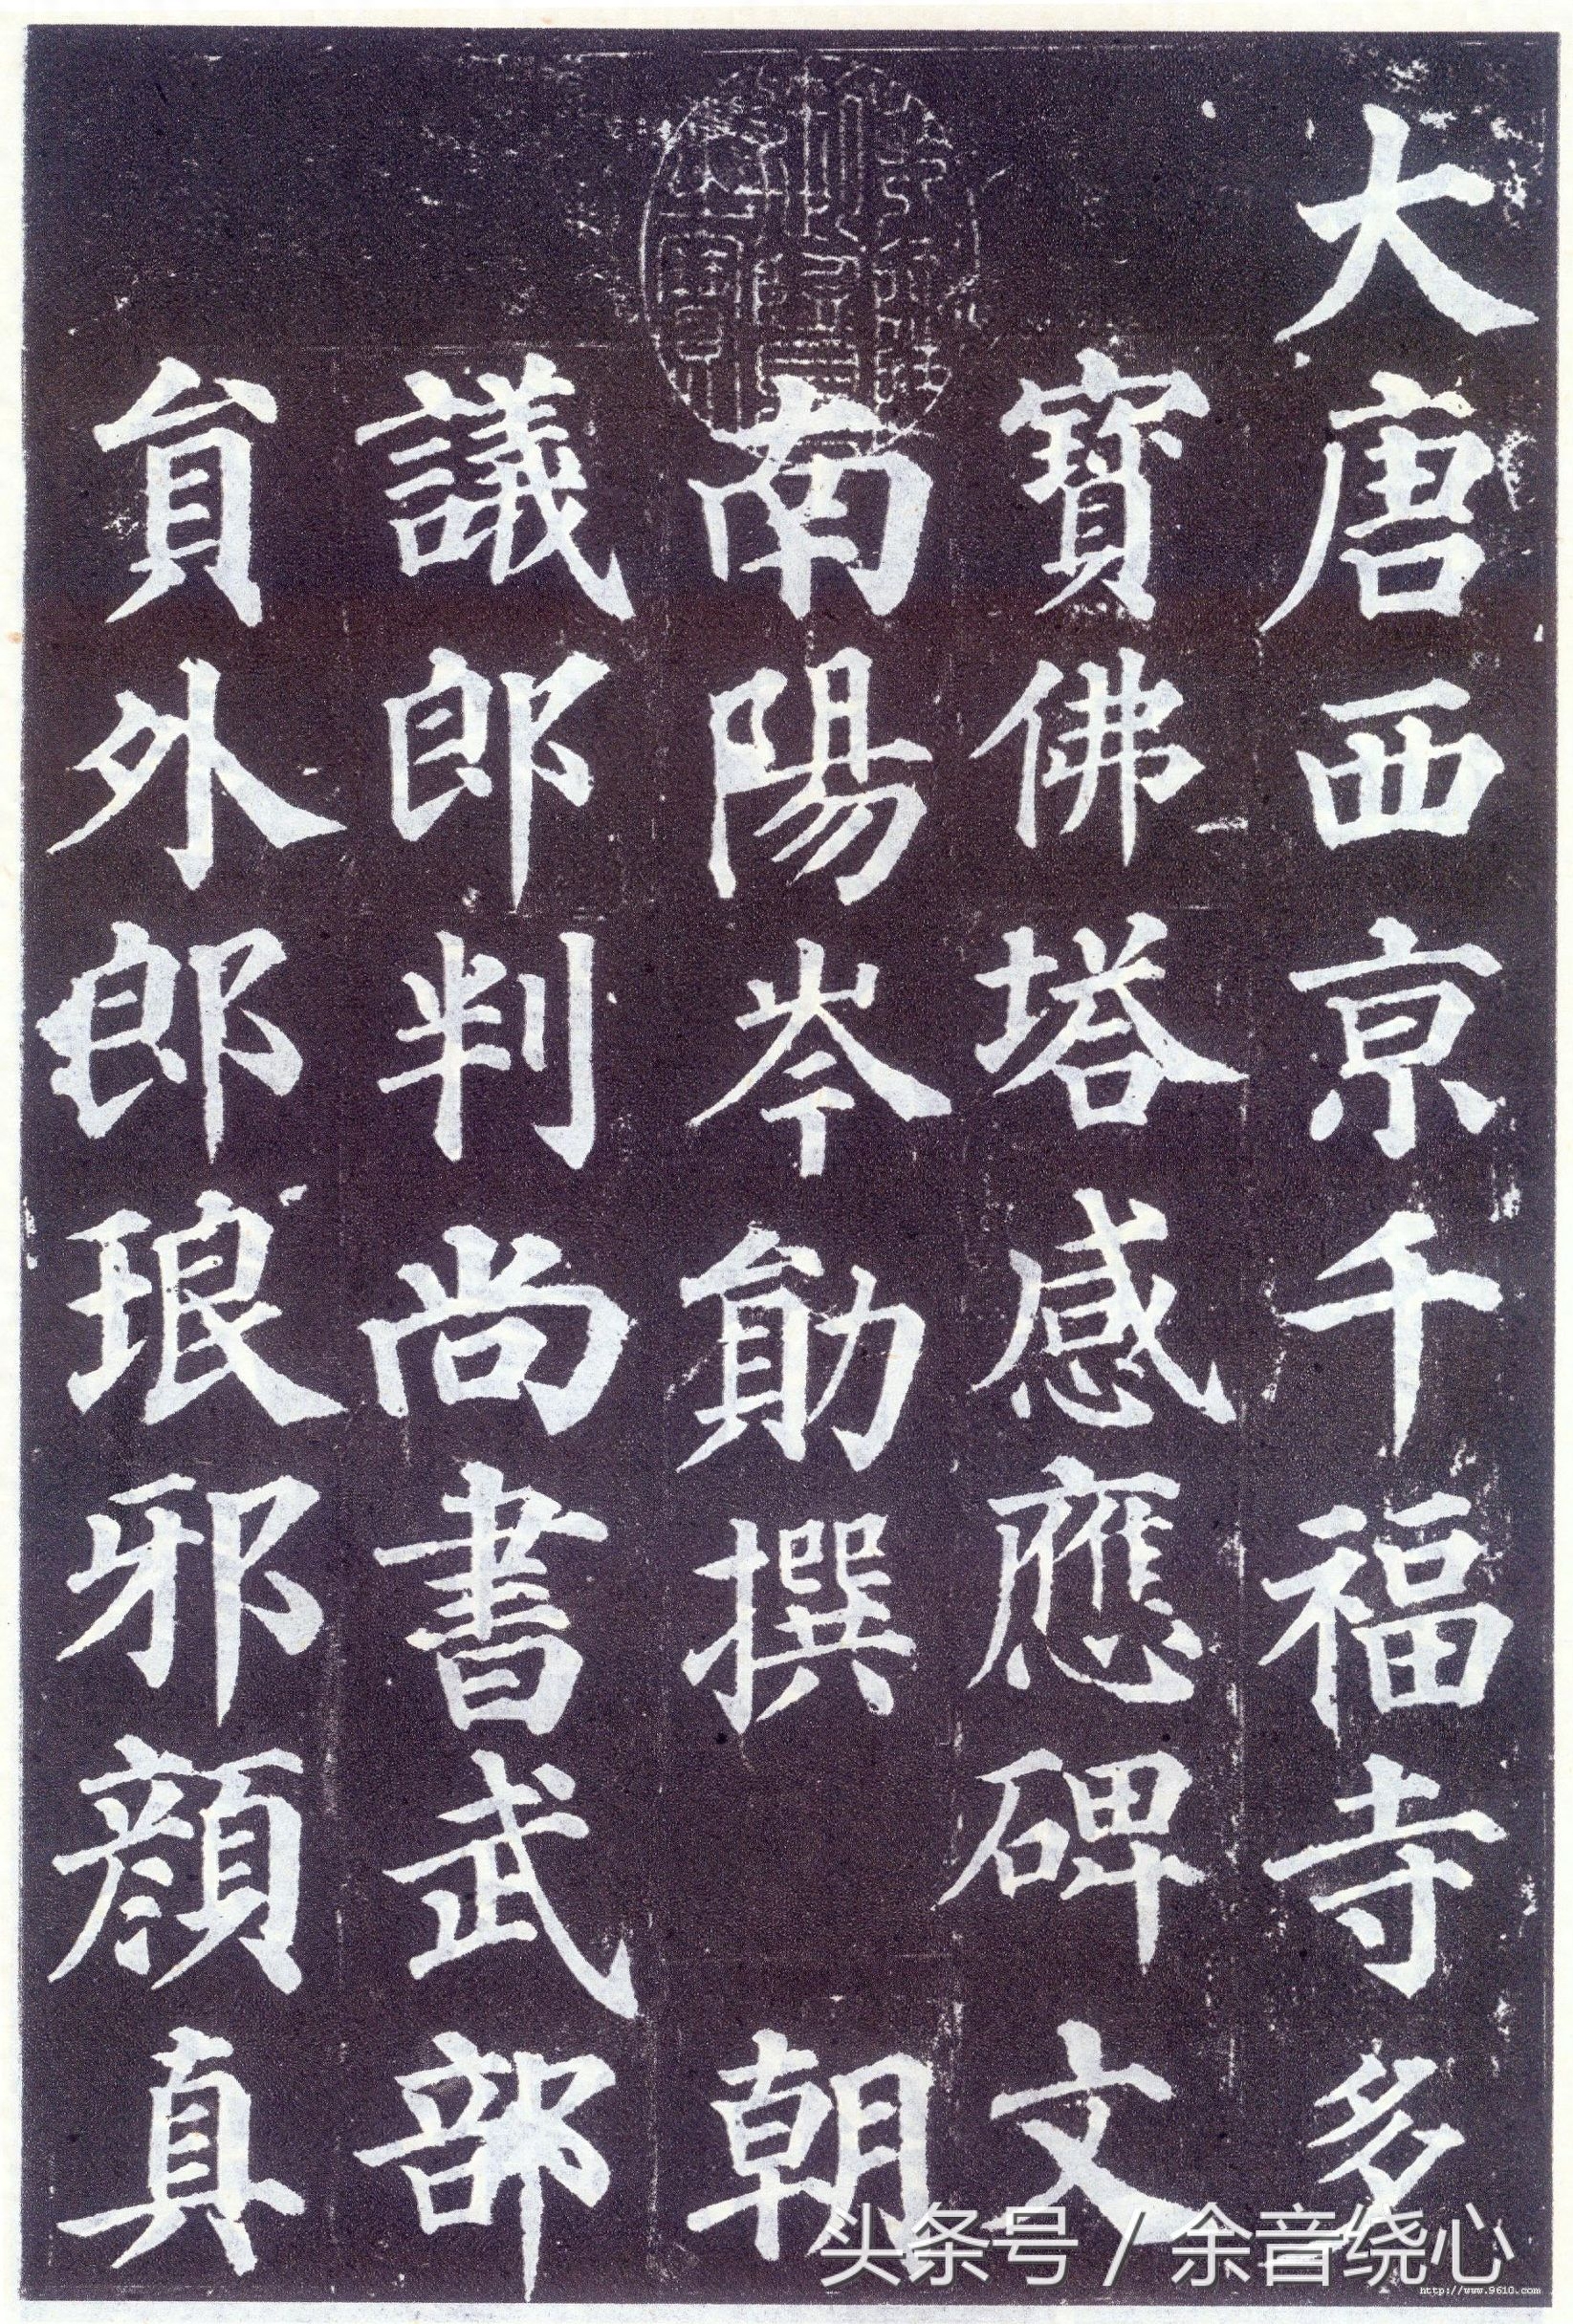 大唐西京千福寺多
寶佛塔感應碑文
南陽岑勛撰 朝
議郎判尚書武部
員外郎琅邪顏真
头条号 / 余音绕心
http://www.9610.com